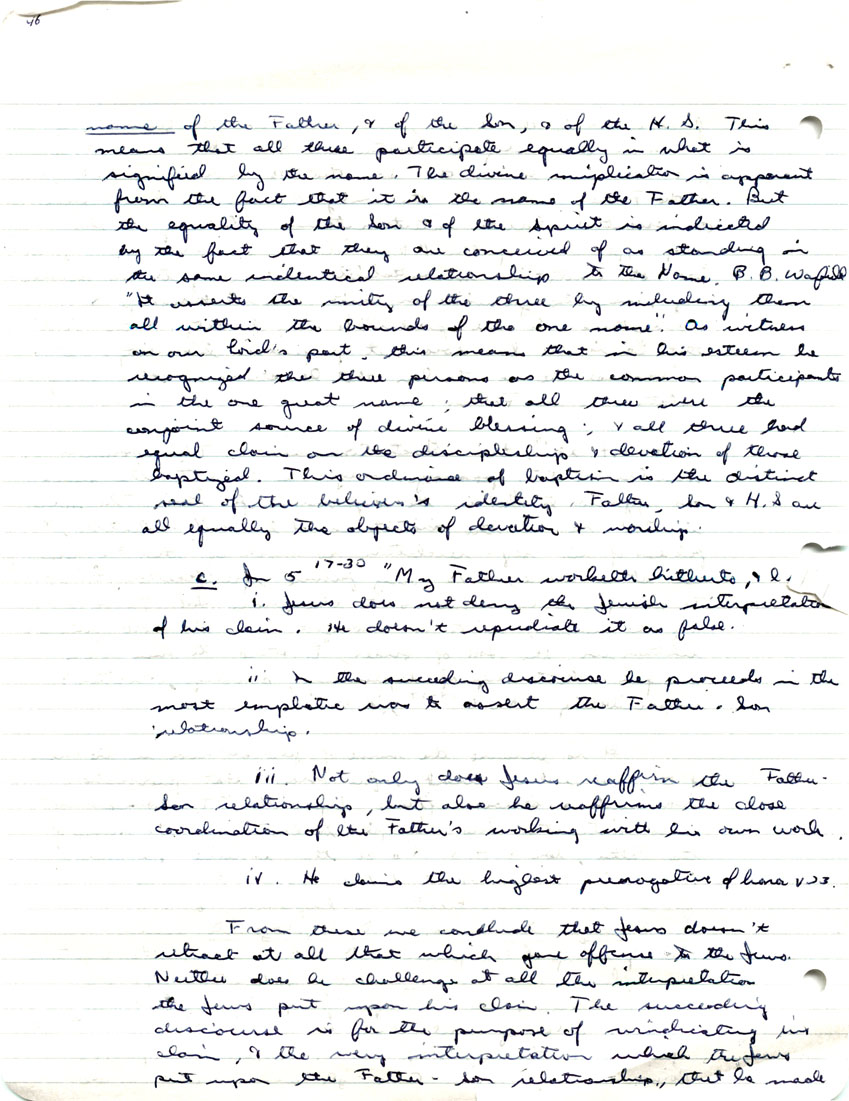 46
name of the Father, & of the Son, & of the H. S. This
means that all three participate equally in what is
signified by the name. The divine implication is apparent
from the fact that it is the name of the Father. But
the equality of the Son & of the Spirit is indicated
by the fact that they are conceived of as standing in
the same indentical relationship to the Name. B. B. Warfield
"It asserts the unity of the three by including them
all within the bounds of the one name". As witness
on our Lord's part, this means that in his esteem he
recognized the three persons as the common participants
in the one great name; that all three were the
conjoint source of divine blessing; & all three had
equal claim on the discipleship & devotion of those
baptized. This ordinance of baptism is the distinct
seal of the believer's identity. Father, Son & H.S are
all equally the objects of devotion & worship.
c. Jn 5 17-30 "My Father worketh hitherto, & I.
i. Jesus does not deny the Jewish interpretation
of his claim. He doesn't repudiate it as false.
ii In the succeding discourse he proceeds in the
most emphatic way to assert the Father-Son
relationship.
iii. Not only does Jesus reaffirm the Father-
Son relationship, but also he reaffirms the close
coordination of the Father's working with his own work.
iv. He claims the highest prerogative of honor v 23.
From these we conclude that Jesus doesn't
retract at all that which gave offense to the Jews.
Neither does he challenge at all the interpretation
the Jews put upon his claim. The succeeding
discourse is for the purpose of vindicating his
claim, & the very interpretation which the Jews
put upon the Father-Son relationship, that he made